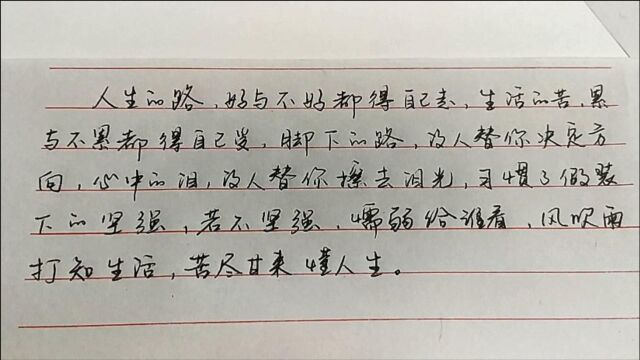 人生的路，好与不好都得自己走，生活的苦，累
与不累都得自己受，脚下的路，没人替你决定方
向，心中的泪，没人替你擦去泪光，习惯了假装
下的坚强，若不坚强，懦弱给谁看，风吹雨
打知生活，苦尽甘来懂人生。